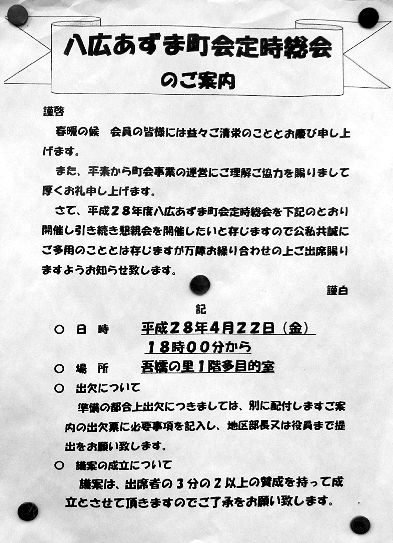 八広あずま町会定時総会
のご案内
謹啓
春暖の候　会員の皆様には益々ご清栄のこととお慶び申し上
げます。
また、平素から町会事業の運営にご理解ご協力を賜りまして
厚くお礼申し上げます。
さて、平成２８年度八広あずま町会定時総会を下記のとおり
開催し引き続き懇親会を開催したいと存じますので公私共誠に
ご多用のこととは存じますが万障お繰り合わせの上ご出席賜り
ますようお知らせ致します。
謹白
記
○　日　時　　平成２８年４月２２日（金）
１８時００分から
○　場　所　　吾嬬の里１階多目的室
○　出欠について
準備の都合上出欠につきましては、別に配付しますご案
内の出欠票に必要事項を記入し、地区部長又は役員まで提
出をお願い致します。
○　議案の成立について
議案は、出席者の３分の２以上の賛成を持って成
立とさせて頂きますのでご了承をお願い致します。